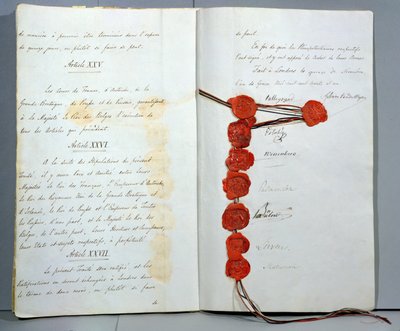 de manière à pouvoir être terminées dans l'espace
de quinze jours, ou plutôt si faire se peut.
Article XXV.
Les Cours de France, d'Autriche, de la
Grande Bretagne, de Prusse et de Russie, garantissent
à Sa Majesté le Roi des Belges l'exécution de
tous les Articles qui précèdent.
Article XXVI.
A la suite des Stipulations du présent
Traité, il y aura Paix et Amitié entre Leurs
Majestés le Roi des Français, l'Empereur d'Autriche,
le Roi du Royaume Uni de la Grande Bretagne et
d'Irlande, le Roi de Prusse et l'Empereur de Toutes
les Russies, d'une part, et Sa Majesté le Roi des
Belges, de l'autre part, Leurs Héritiers et Successeurs,
Leurs Etats et Sujets respectifs à perpétuité.
Article XXVII.
Le présent Traité sera ratifié, et les
Ratifications en seront échangées à Londres dans
le terme de deux mois, ou plutôt si faire
se
se peut.
En foi de quoi les Plénipotentiaires respectifs
l'ont signé, et y ont apposé le Cachet de leurs Armes.
Fait à Londres le quinze de Novembre
l'an de Grace Mil huit cent trente et un.
Sylvain Van de Weyer
Talleyrand
Esterhazy
Wessenberg
Palmerston
Bülow
Lieven
Matuszewic